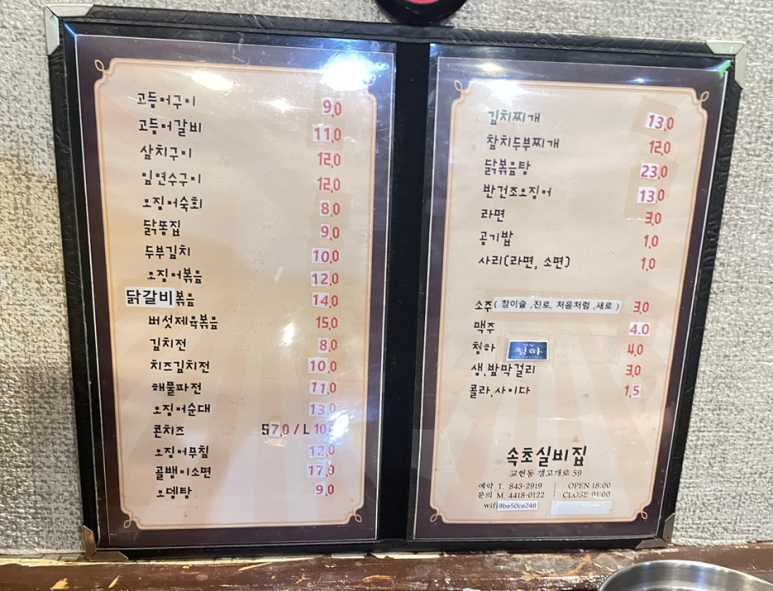 고등어구이 9,0
고등어갈비 11,0
삼치구이 12,0
임연수구이 12,0
오징어숙회 8,0
닭똥집 9,0
두부김치 10,0
오징어볶음 12,0
닭갈비볶음 14,0
버섯제육볶음 15,0
김치전 8,0
치즈김치전 10,0
해물파전 11,0
오징어순대 13,0
콘치즈 S7,0 / L 10,
오징어무침 12,0
골뱅이소면 17,0
오뎅탕 9,0
김치찌개 13,0
참치두부찌개 12,0
닭볶음탕 23,0
반건조오징어 13,0
라면 3,0
공기밥 1,0
사리(라면, 소면) 1,0
소주( 참이슬 ,진로, 처음처럼 ,새로 ) 3,0
맥주 4.0
청하 청하 4,0
생,밤막걸리 3,0
콜라,사이다 1,5
속초실비집
교현동 갱고개로 59
예약 T. 843-2919 OPEN 18:00
문의 M. 4418-0122 CLOSE 01:00
wifi 8be50ce248